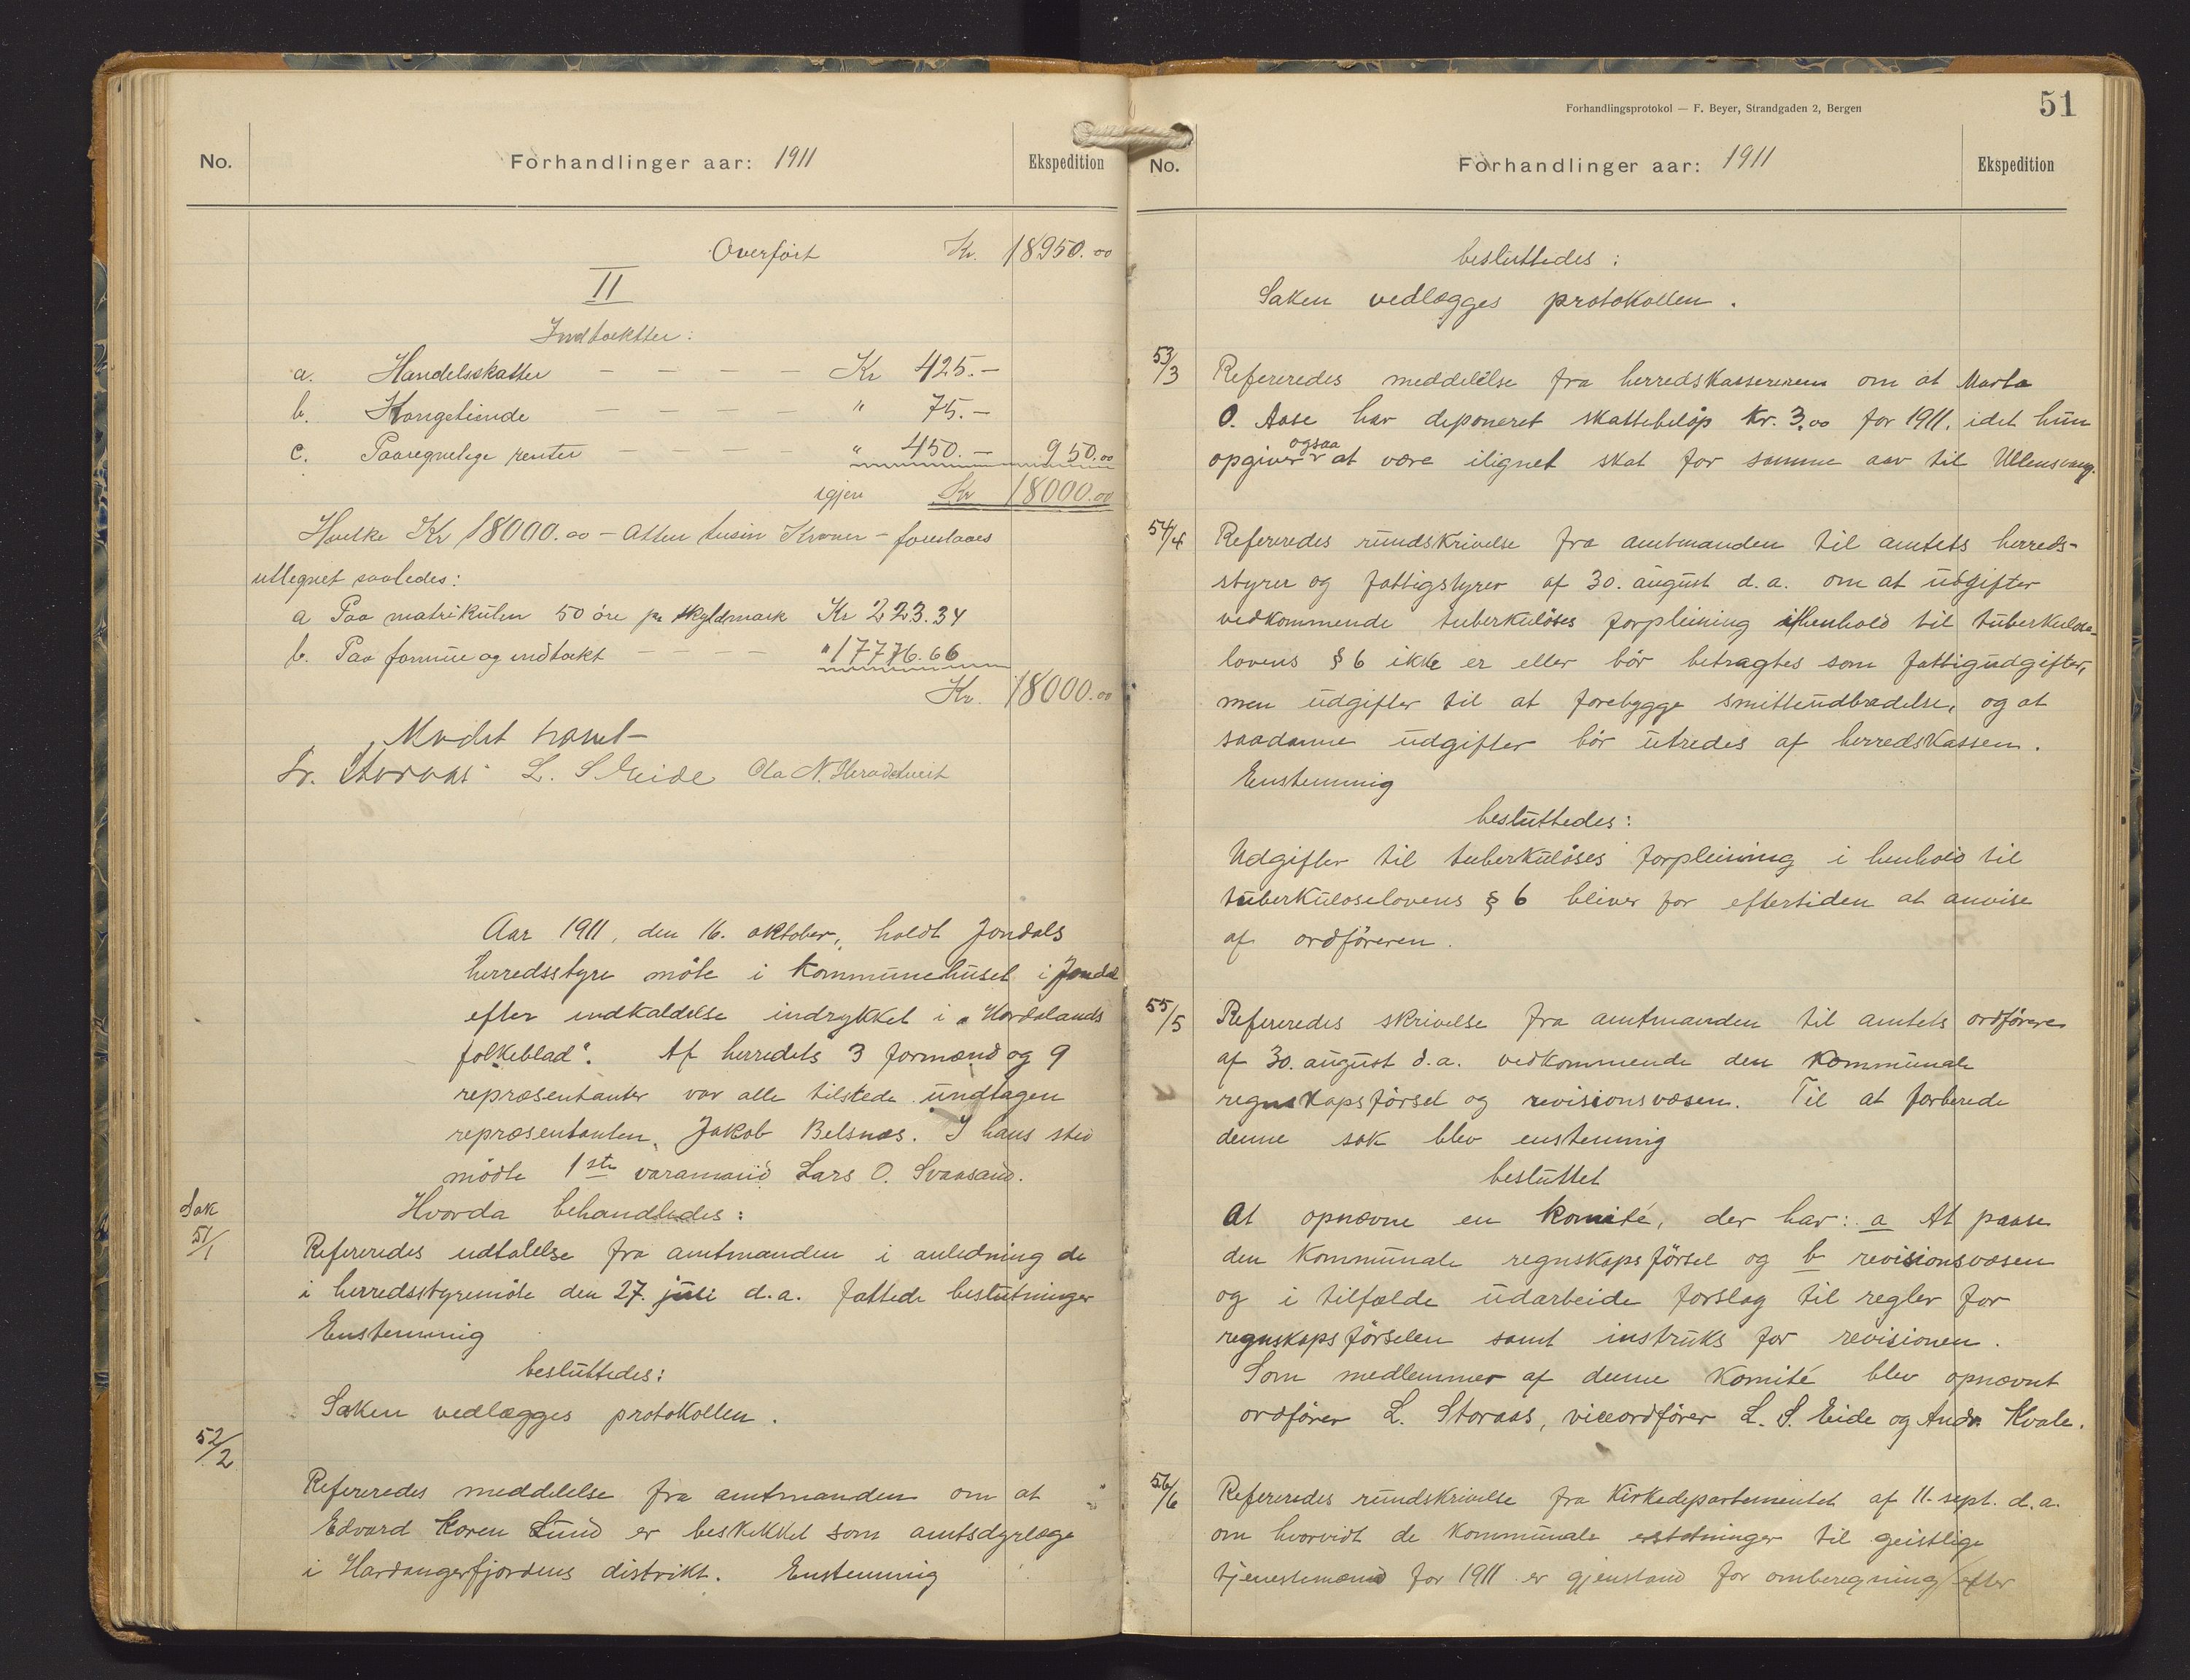 No.
Forhandlinger aar: 1911
Ekspedition
Overført Kr. 18950.00
II
Indtækter:
a. Handelsskatter — — — — Kr 425.—
b. Kongetiende — — — — " 75.—
c. Paaregnelige renter — — — — " 450.— 950.00
igjen Kr 18000.00
Hvilke Kr 18000.00 — Atten tusin Kroner — foreslaaes
utlegnet saaledes:
a Paa matrikulen 50 øre pr skyldmark Kr 223.34
b. Paa formue og indtækt — — — — " 17776.66
Kr. 18000.00
Mødet hævet
L. Storaas L. S Eide Ola N. Heradstveit
Aar 1911, den 16. oktober, holdt Jondals
herredsstyre møte i kommunehuset i Jondal
efter indkaldelse indrykket i „Hordalands
folkeblad“. Af herredets 3 formænd og 9
repræsentanter var alle tilstede undtagen
repræsentanten Jakob Belsnæs. I hans sted
mødte 1ste varamand Lars O. Svaasand.
Hvorda behandledes:
Sak
51/1
Refereredes udtalelse fra amtmanden i anledning de
i herredsstyremøte den 27. juli d.a. fattede beslutninger
Enstemmig
besluttedes:
Saken vedlægges protokollen.
52/2
Refereredes meddelelse fra amtmanden om at
Edvard Koren Lund er beskikket som amtsdyrlæge
i Hardangerfjordens distrikt. Enstemmig
Forhandlingsprotokol — F. Beyer, Strandgaden 2, Bergen
51
No.
Forhandlinger aar: 1911
Ekspedition
besluttedes:
Saken vedlægges protokollen.
53/3
Refereredes meddelelse fra herredskassereren om at Marta
O. Aase har deponeret skattebeløp kr. 3.00 for 1911, idet hun
opgiver ogsaa at være ilignet skat for samme aar til Ullensvang.
54/4
Refereredes rundskrivelse fra amtmanden til amtets herreds-
styrer og fattigstyrer af 30. august d.a. om at udgifter
vedkommende tuberkuløses forpleining i henhold til tuberkulose-
lovens § 6 ikke er eller bør betragtes som fattigudgifter,
men udgifter til at forebygge smitteudbredelse, og at
saadanne udgifter bør utredes af herredskassen.
Enstemmig
besluttedes:
Udgifter til tuberkuløses forpleining i henhold til
tuberkuloselovens § 6 bliver for eftertiden at anvise
af ordføreren.
55/5
Refereredes skrivelse fra amtmanden til amtets ordførere
af 30. august d.a. vedkommende den kommunale
regnskapsførsel og revisionsvæsen. Til at forberede
denne sak blev enstemmig
besluttet
At opnævne en komité, der har: a At paase
den kommunale regnskapsførsel og b revisionsvæsen
og i tilfælde udarbeide forslag til regler for
regnskapsførselen samt instruks for revisionen.
Som medlemmer af denne komité blev opnævnt
ordfører L. Storaas, viceordfører L. S. Eide og Andr. Kvale.
56/6
Refereredes rundskrivelse fra Kirkedepartementet af 11. sept. d.a.
om hvorvidt de kommunale erstatninger til geistlige
tjenestemænd for 1911 er gjenstand for omberegning efter